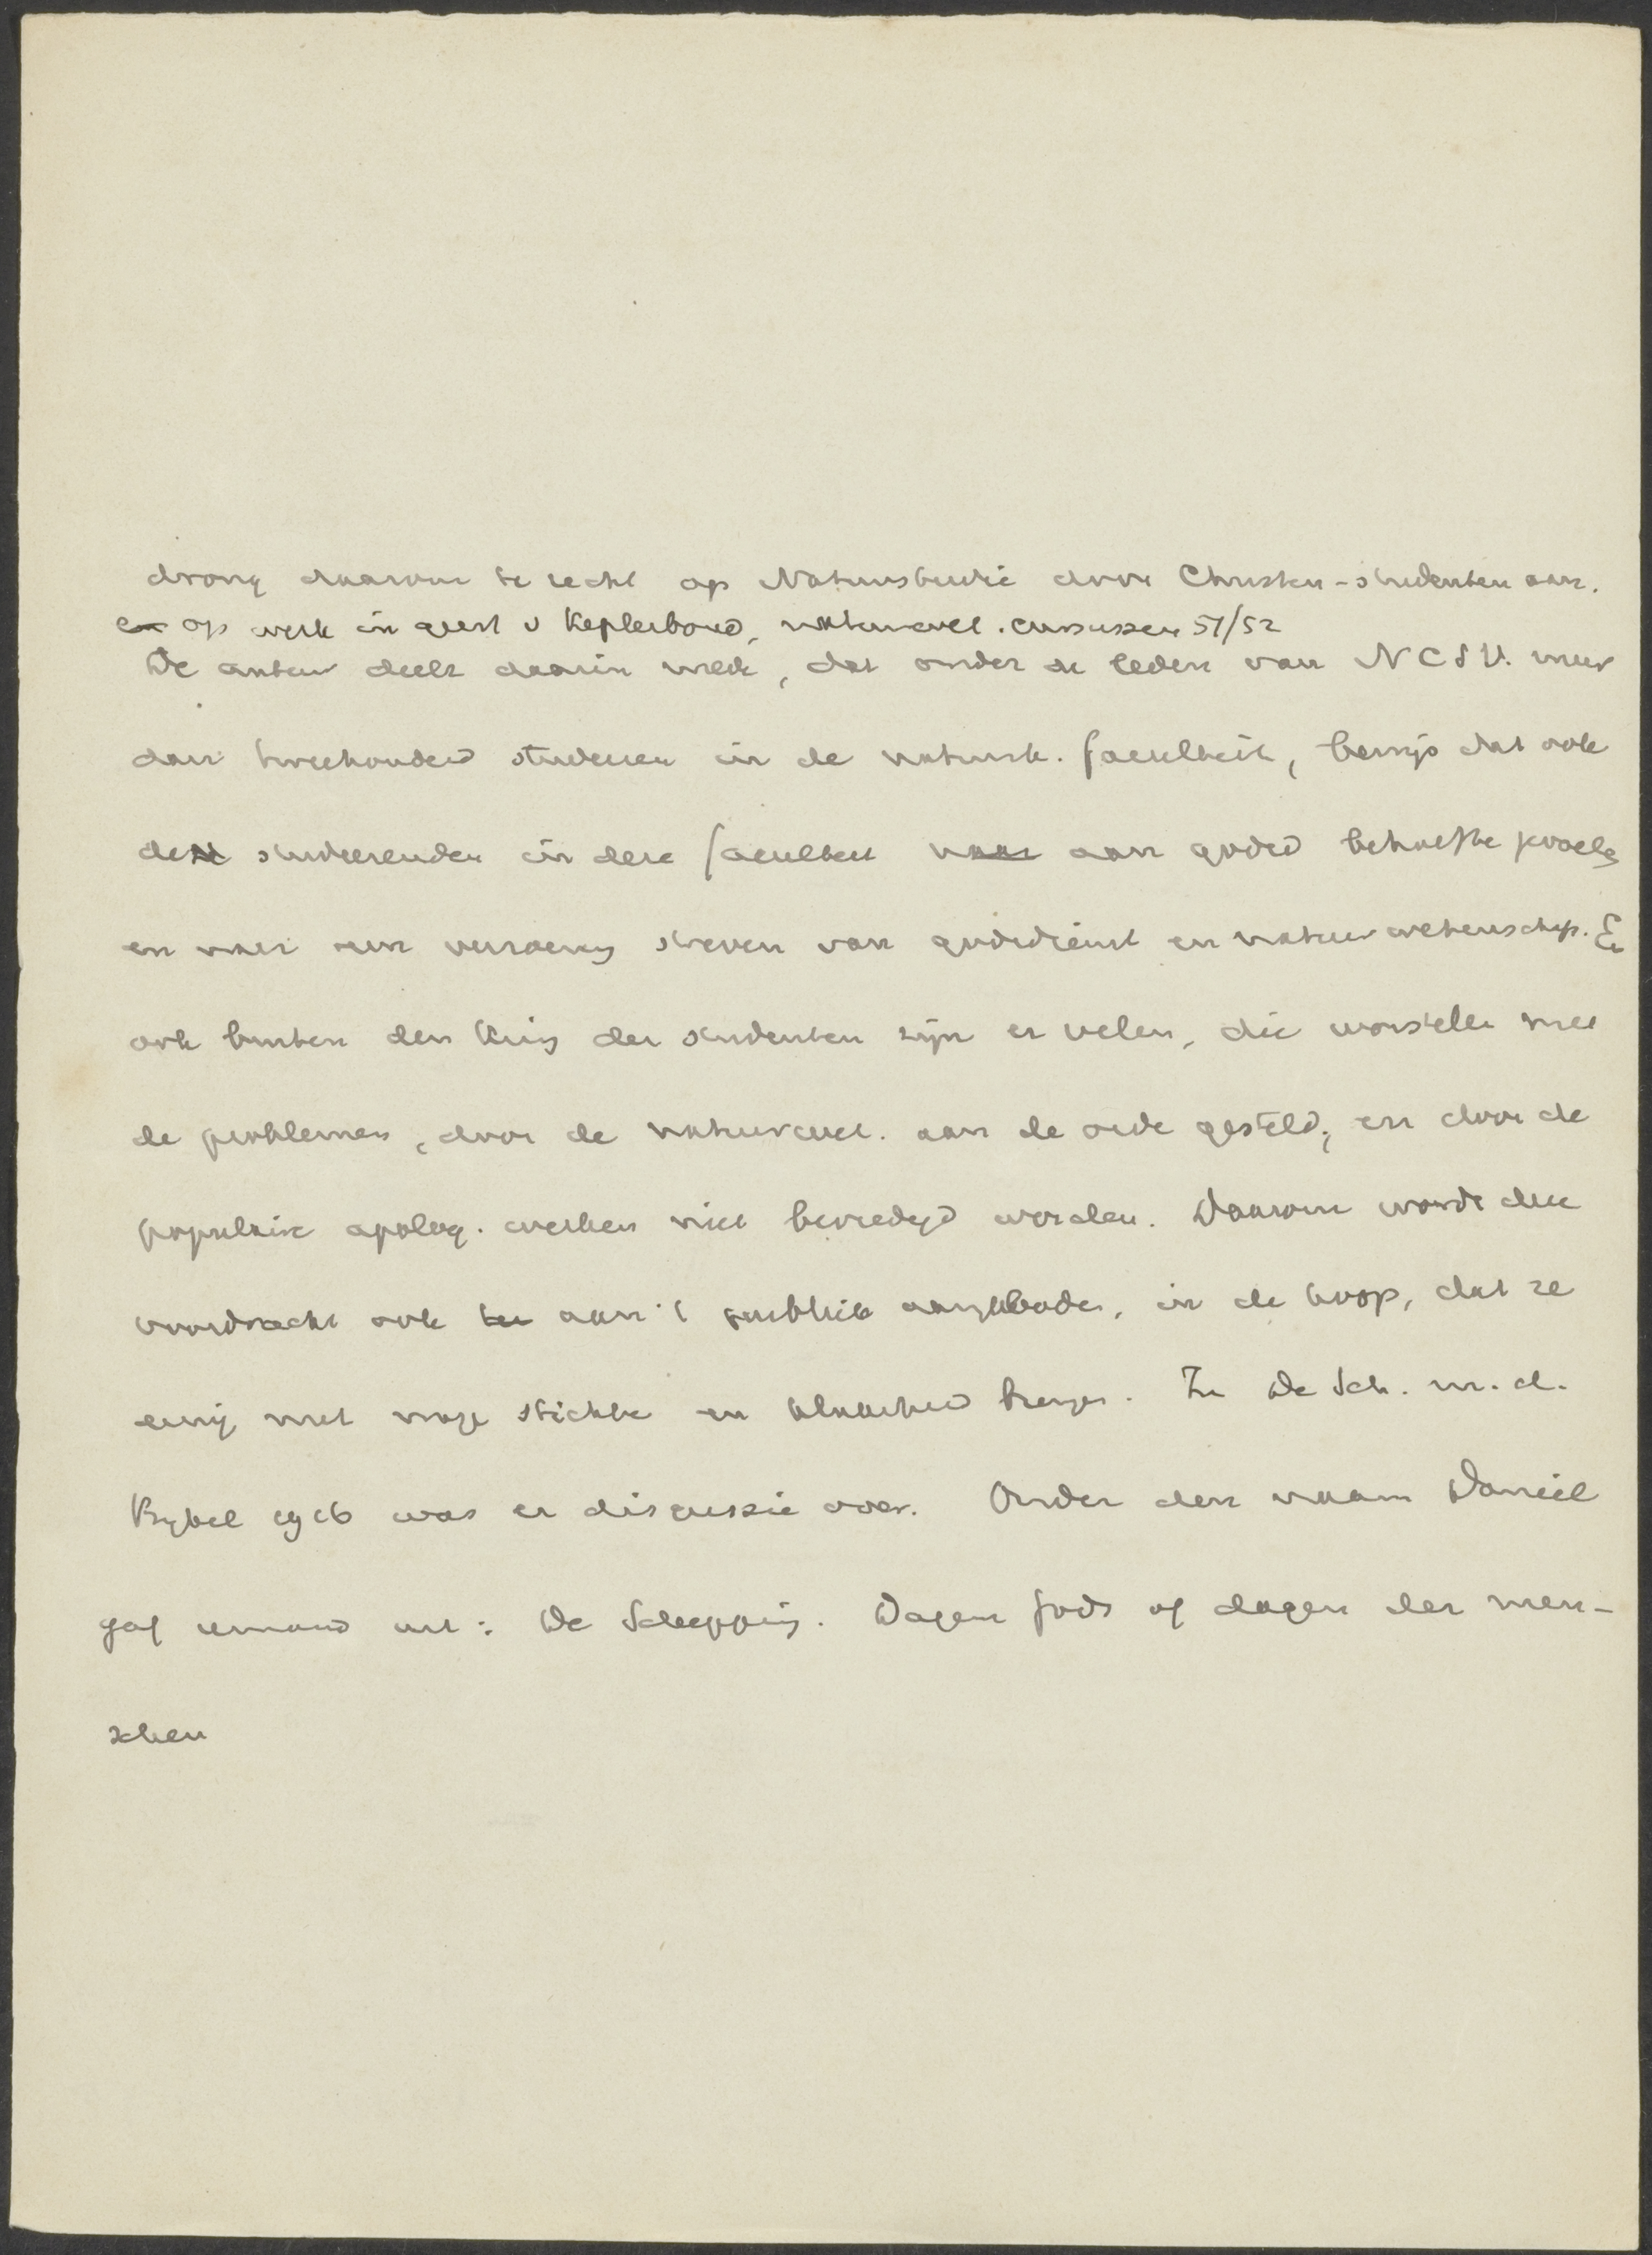 drong daarom te recht op Natuurstudie door Christen-studenten aan.
en op werk in geest v Keplerbond, natuurwet. cursussen 51/52
De auteur deelt daarin mede, dat onder de leden van NCSV. meer
dan tweehonderd studeeren in de natuurk. faculteit, bewijs dat ook
de studeerenden in deze faculteit aan godsd behoefte voelen
en naar een verzoening streven van godsdienst en natuurwetenschap. En
ook buiten den kring der studenten zijn er velen, die worstelen met
de problemen, door de natuurwet. aan de orde gesteld, en door de
populaire apolog. werken niet bevredigd worden. Daarom wordt deze
voordracht ook aan 't publiek aangeboden, in de hoop, dat ze
eenig nut moge stichten en klaarheid brengen. In De Sch. m. d.
Bybel was er discussie over. Onder den naam Daniël
gaf iemand uit: De Schepping. Dagen Gods of dagen der men-
schen